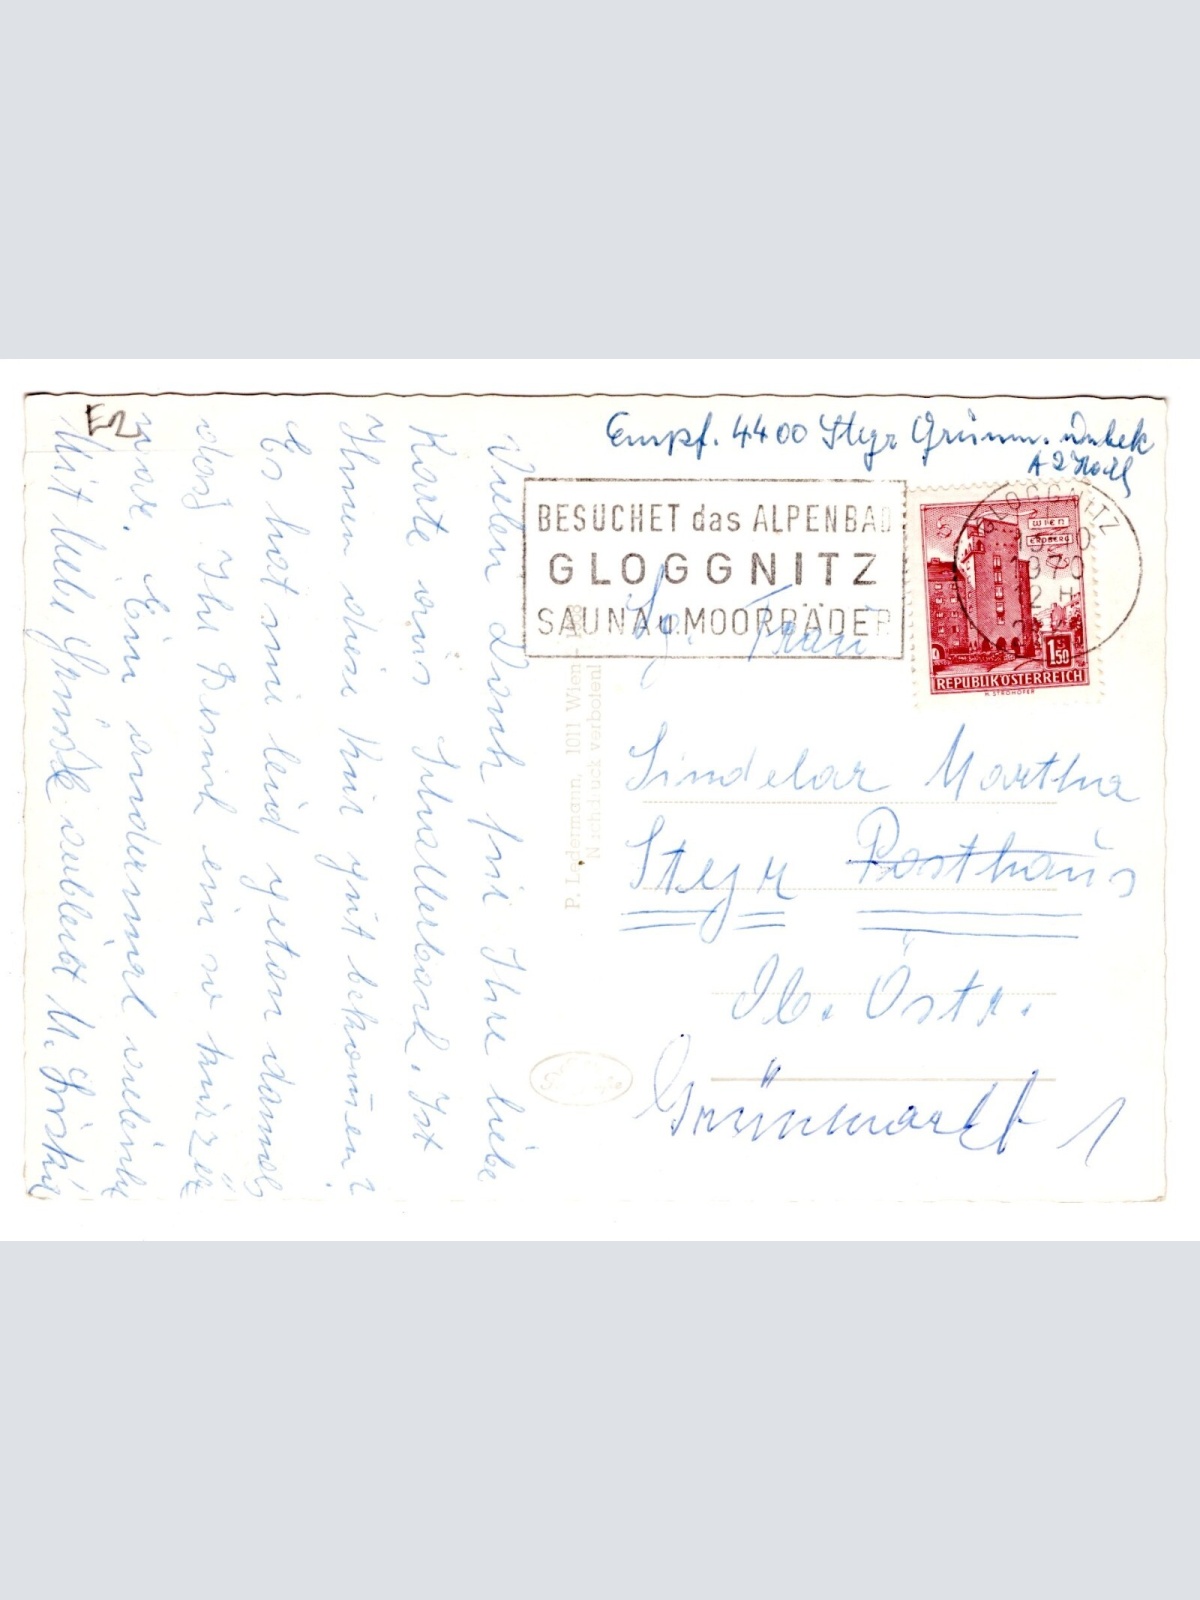 E2
Vielen Dank für Ihre liebe
Karte aus Schallerbach. Ist
Ihnen diese Kur gut bekommen?
Es hat mir leid getan damals
daß Ihr Besuch ein so kurzer
war. Ein andermal vielleicht
Mit liebe Grüße verbleibt M.
P. Ledermann, 1011 Wien
Nachdruck verboten!
Empf. 4400 Steyr Grünm. unbek
BESUCHET das ALPENBAD
GLOGGNITZ
SAUNA u. MOORBÄDER
GLOGGNITZ
1970
12 H
WIEN
ERDBERG
1.50
REPUBLIK ÖSTERREICH
H. STROHOFER
Sg. Frau
Sindelar Martha
Steyr Posthaus
Ob. Östr.
Grünmarkt 1